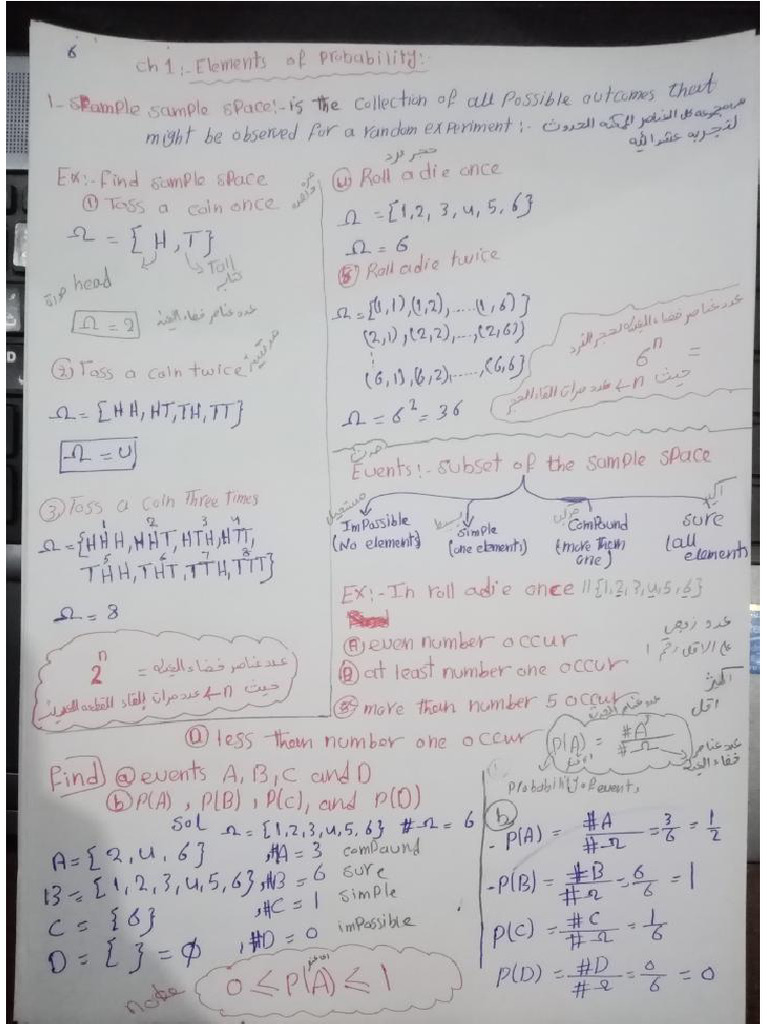 6
ch 1:- Elements of Probability:-
1- sample space:- is the collection of all possible outcomes that
might be observed for a random experiment:-
Ex:- find sample space
① Toss a coin once
Ω = {H, T}
head
Tail
صورة
Ω = 2
عدد عناصر فضاء العينة
② Toss a coin twice
مرتين
Ω = {HH, HT, TH, TT}
Ω = 4
③ Toss a coin Three times
1 2 3 4
Ω = {HHH, HHT, HTH, HTT,
5 6 7 8
THH, THT, TTH, TTT}
Ω = 8
عدد عناصر فضاء العينة =
2ⁿ
حيث n ← عدد مرات إلقاء القطعة
حجر نرد
④ Roll a die once
Ω = {1, 2, 3, 4, 5, 6}
Ω = 6
⑤ Roll a die twice
Ω = {(1,1), (1,2), .... (1,6)}
(2,1), (2,2), ..., (2,6)}
⋮
(6,1), (6,2), ....., (6,6)}
Ω = 6² = 36
عدد عناصر فضاء العينة لحجر النرد
= 6ⁿ
حيث n ← عدد مرات القاء الحجر
Events:- subset of the sample space
مستحيل
Impossible
(No elements)
بسيط
simple
(one elements)
مركب
Compound
(more them one)
أكيد
sure
(all elements
Ex:- In roll a die once // {1, 2, 3, 4, 5, 6}
Ⓐ even number occur
عدد زوجي
Ⓑ at least number one occur
ع الاقل رقم 1
Ⓒ more than number 5 occur
أكثر
Ⓓ less than number one occur
اقل
P(A) = #A / #Ω
عدد عناصر
فضاء العينة
Probability of event
Find ⓐ events A, B, C and D
ⓑ P(A), P(B), P(c), and P(D)
Sol Ω = {1, 2, 3, 4, 5, 6} #Ω = 6
A = {2, 4, 6} , #A = 3 compound
B = {1, 2, 3, 4, 5, 6}, #B = 6 sure
C = {6} , #C = 1 simple
D = { } = ∅ , #D = 0 impossible
note
0 ≤ P(A) ≤ 1
ⓑ
- P(A) = #A / #Ω = 3/6 = 1/2
- P(B) = #B / #Ω = 6/6 = 1
P(C) = #C / #Ω = 1/6
P(D) = #D / #Ω = 0/6 = 0